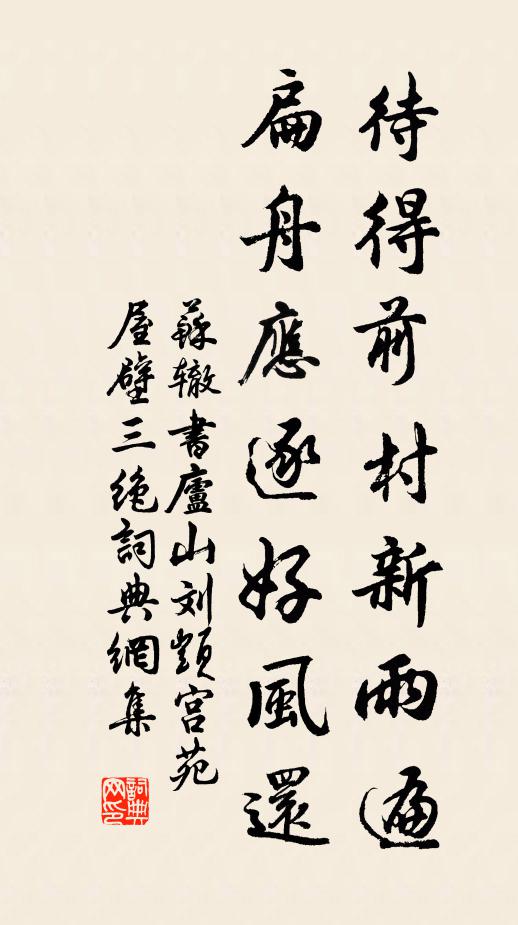 待得前村新雨遍
扁舟應逐好風還
蘇辙書廬山刘顗宫苑
屋壁三绝詞典網集
詞典
网印